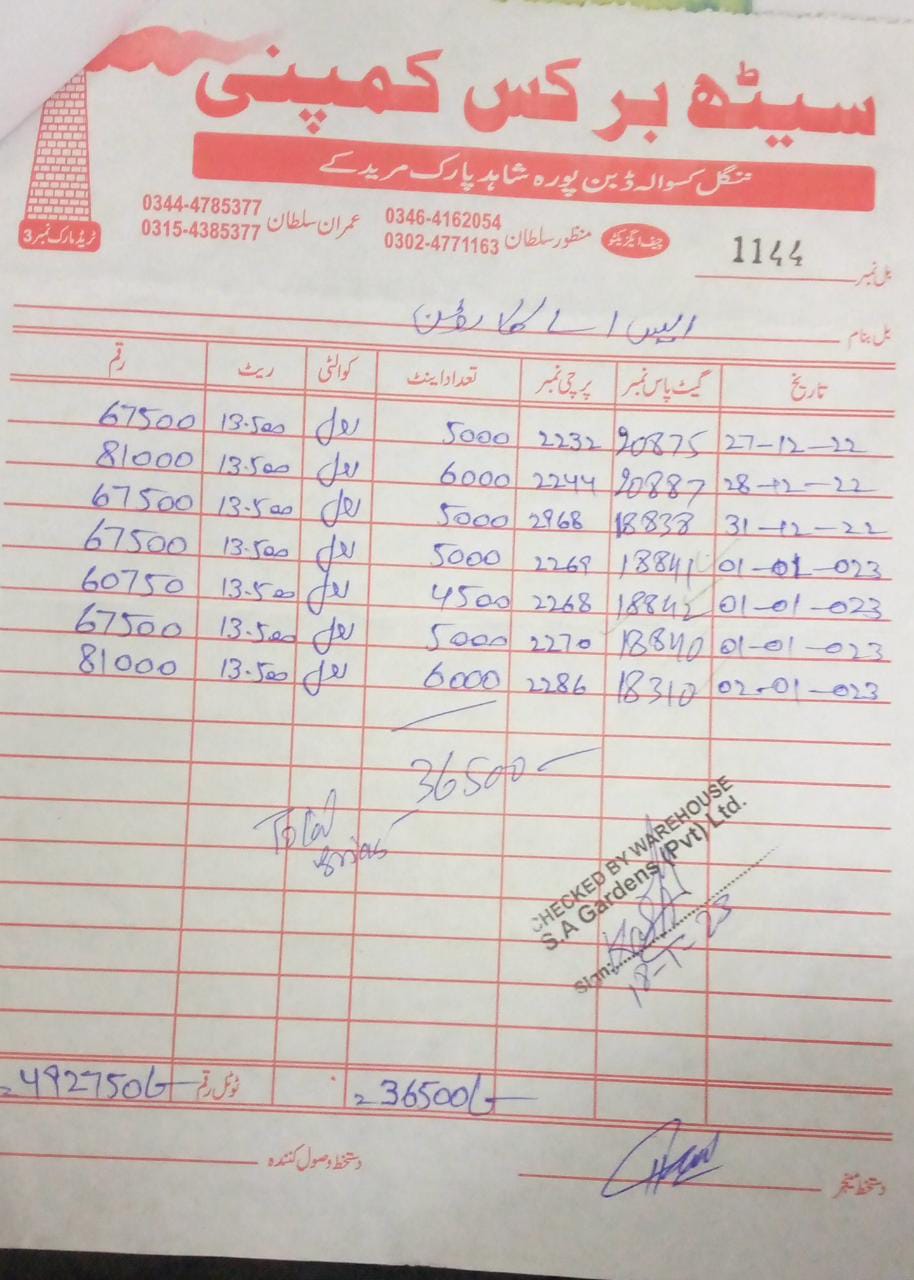 سیٹھ برکس کمپنی
ننگل کسوالہ ڈبن پورہ شاہد پارک مریدکے
چیف ایگزیکٹو منظور سلطان 0346-4162054 0302-4771163 عمران سلطان 0344-4785377 0315-4385377
ٹریڈ مارک نمبر 3
بل نمبر 1144
بل بنام ایس اے گارڈن
تاریخ گیٹ پاس نمبر پرچی نمبر تعداد اینٹ کوالٹی ریٹ رقم
27-12-22 20875 2232 5000 اول 13.500 67500
28-12-22 20887 2244 6000 اول 13.500 81000
31-12-22 18838 2968 5000 اول 13.500 67500
01-01-023 18841 2269 5000 اول 13.500 67500
01-01-023 18842 2268 4500 اول 13.500 60750
01-01-023 18840 2270 5000 اول 13.500 67500
02-01-023 18310 2286 6000 اول 13.500 81000
36500
Total
CHECKED BY WAREHOUSE
S.A Gardens (Pvt) Ltd.
Sign:
18-1-23
36500/- ٹوٹل رقم 492750/-
دستخط منیجر دستخط وصول کنندہ